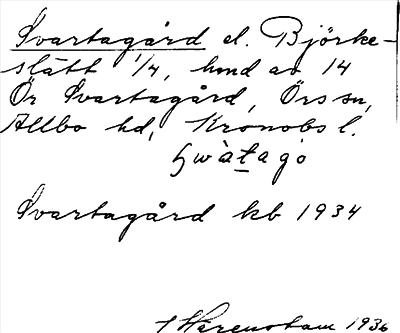 Svartagård el. Björke-
slätt 1/4, hmd av 14
Ör Svartagård, Örs sn,
Allbo hd, Kronobs l.
Svartagård kb 1934
Warenstam 1936